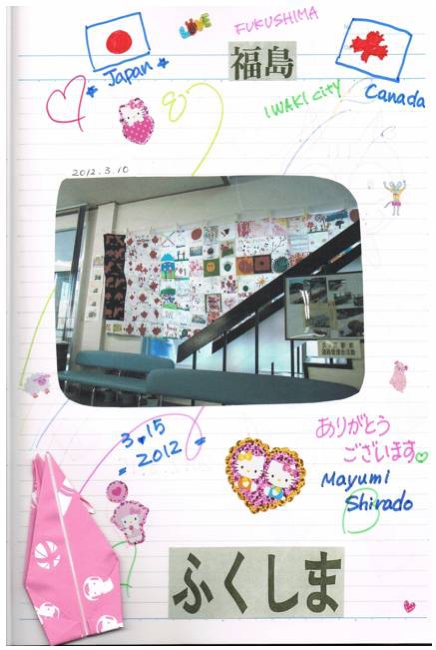 LOVE
FUKUSHIMA
福島
Japan
IWAKI city
Canada
2012.3.10
3.15
2012
ありがとう
ございます
Mayumi
Shirado
ふくしま